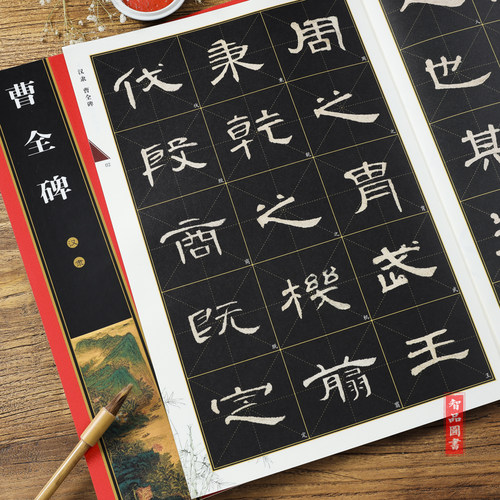 曹全碑
汉隶
汉隶 曹全碑
也其
周之胄武王
秉乾之機翦
伐殷商既定
智品圖書